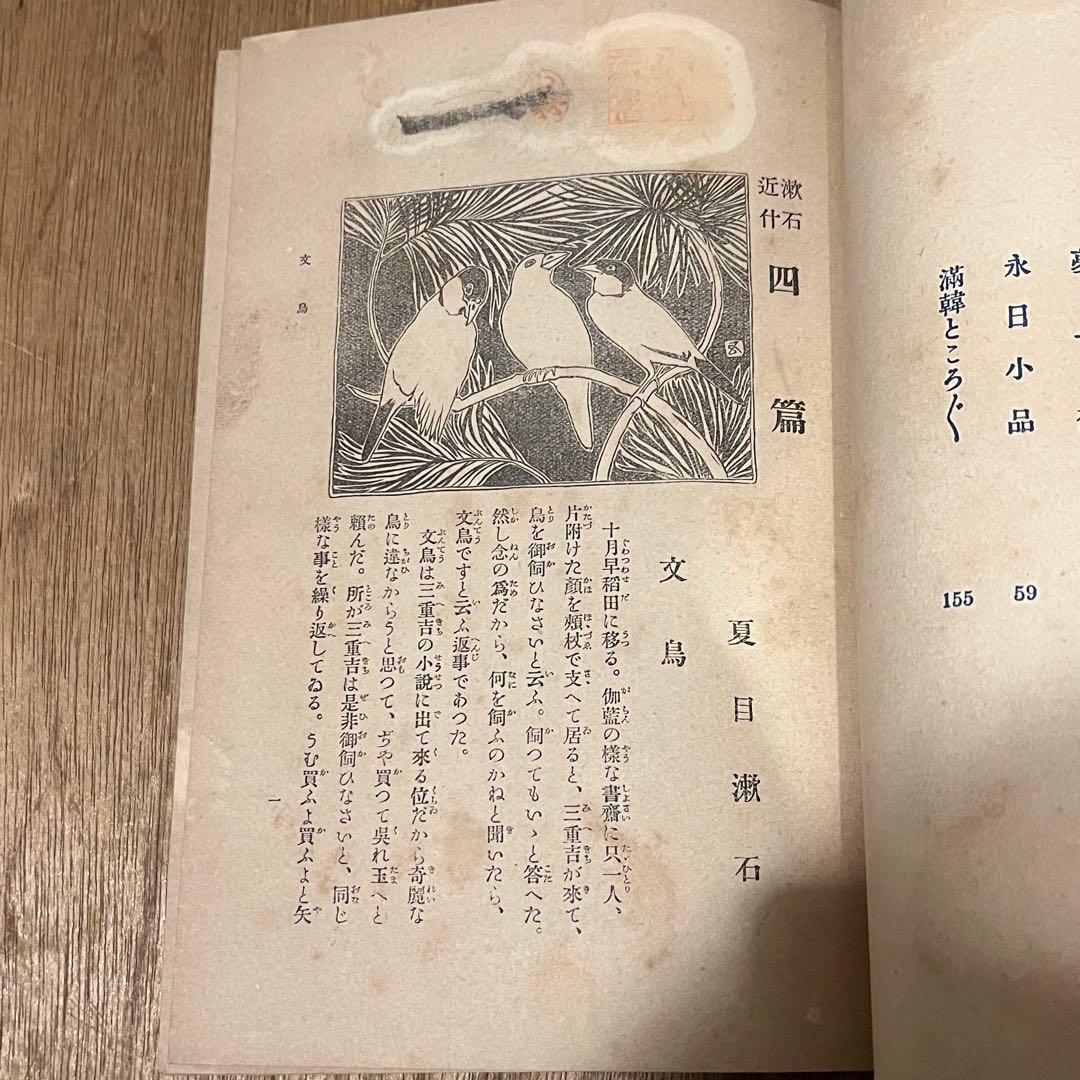 永日小品
59
滿韓ところ〴〵
155
漱石近什
四篇
夏目漱石
文鳥
十月早稻田に移る。伽藍の樣な書齋に只一人、
片附けた顏を頰杖で支へて居ると、三重吉が來て、
鳥を御飼ひなさいと云ふ。飼つてもいゝと答へた。
然し念の爲だから、何を飼ふのかねと聞いたら、
文鳥ですと云ふ返事であつた。
文鳥は三重吉の小說に出て來る位だから奇麗な
鳥に違なからうと思つて、ぢや買つて吳れ玉へと
賴んだ。所が三重吉は是非御飼ひなさいと、同じ
樣な事を繰り返してゐる。うむ買ふよ買ふよと矢
文鳥
一